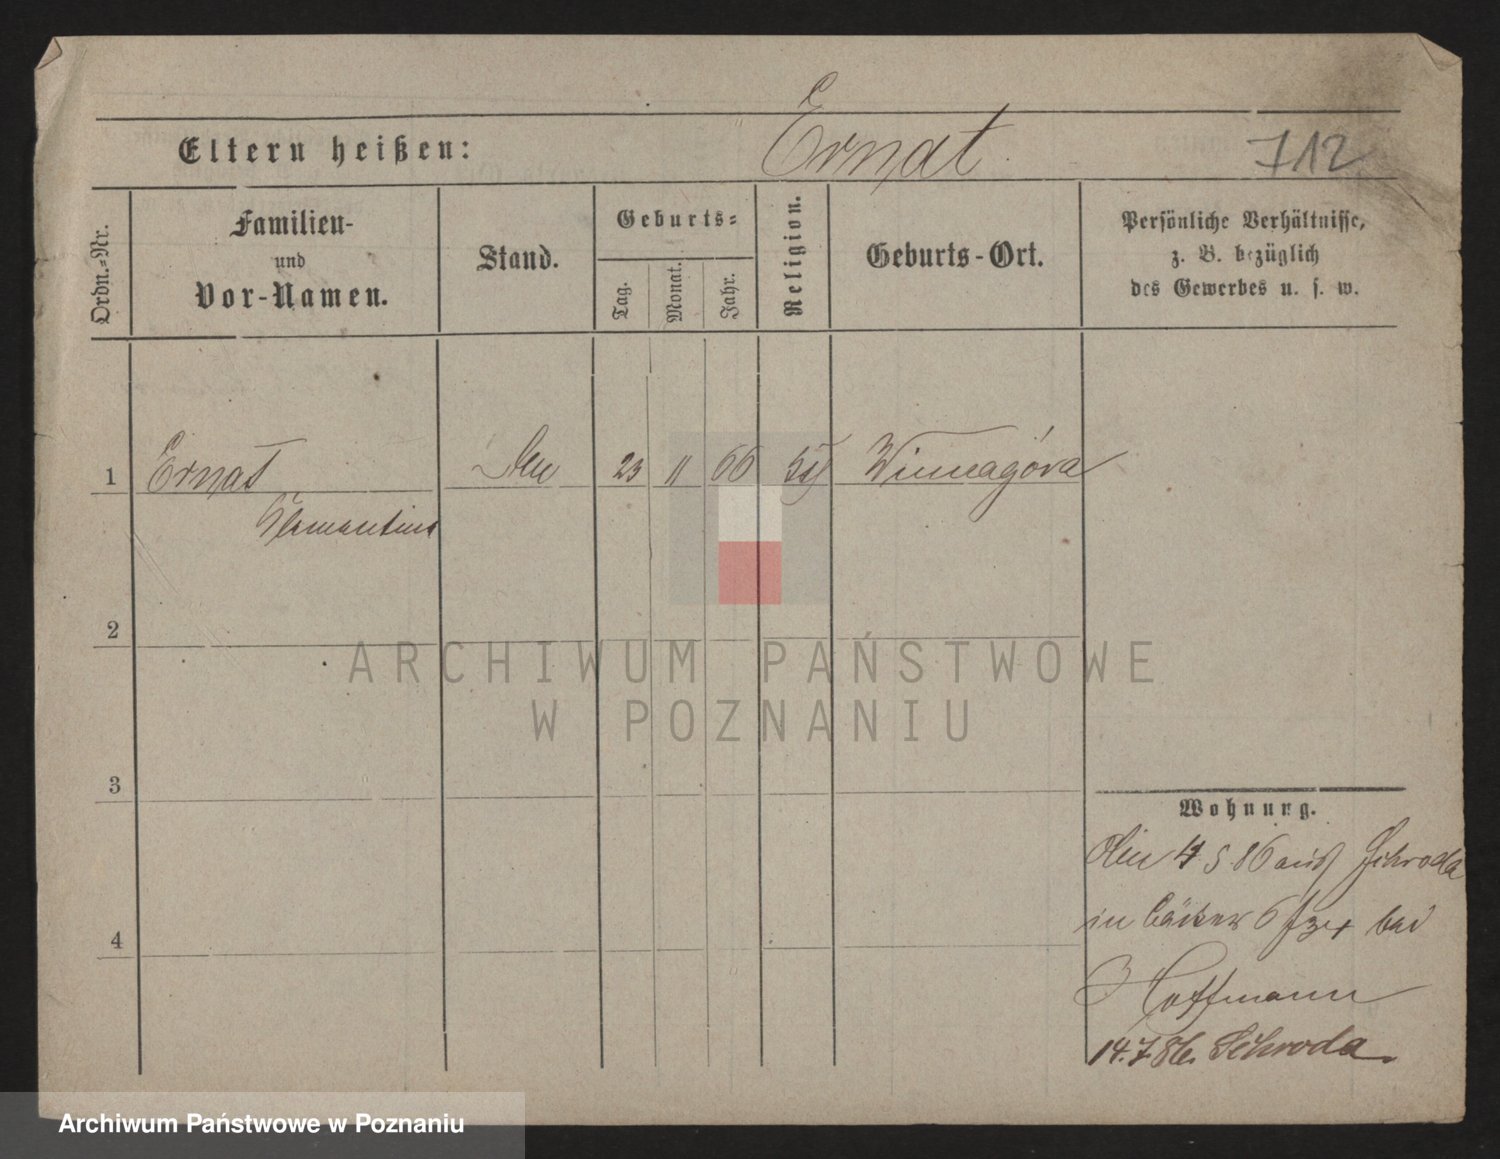 Ernat
712
Eltern heißen:
Ordn.-Nr.
Familien-
und
Vor-Namen.
Stand.
Geburts-
Tag.
Monat.
Jahr.
Religion.
Geburts-Ort.
Persönliche Verhältnisse,
z. B. bezüglich
des Gewerbes u. s. w.
1 Ernat 23 11 66 Winnagóra
2
ARCHIWUM PAŃSTWOWE
W POZNANIU
3
Wohnung.
4 5 86 aus Schroda
in bei
4
Hoffmann
14.7.86. Schroda.
Archiwum Państwowe w Poznaniu